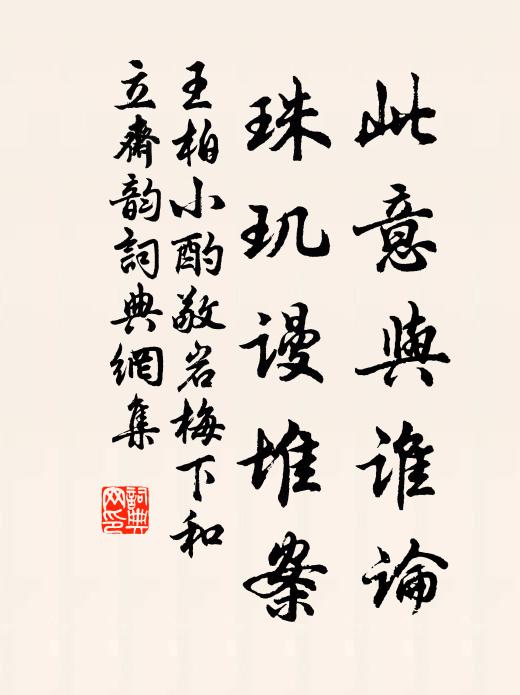 此意與誰論
珠玑谩堆案
王柏小酌敬岩梅下和
立齋韵詞典網集
詞典网印